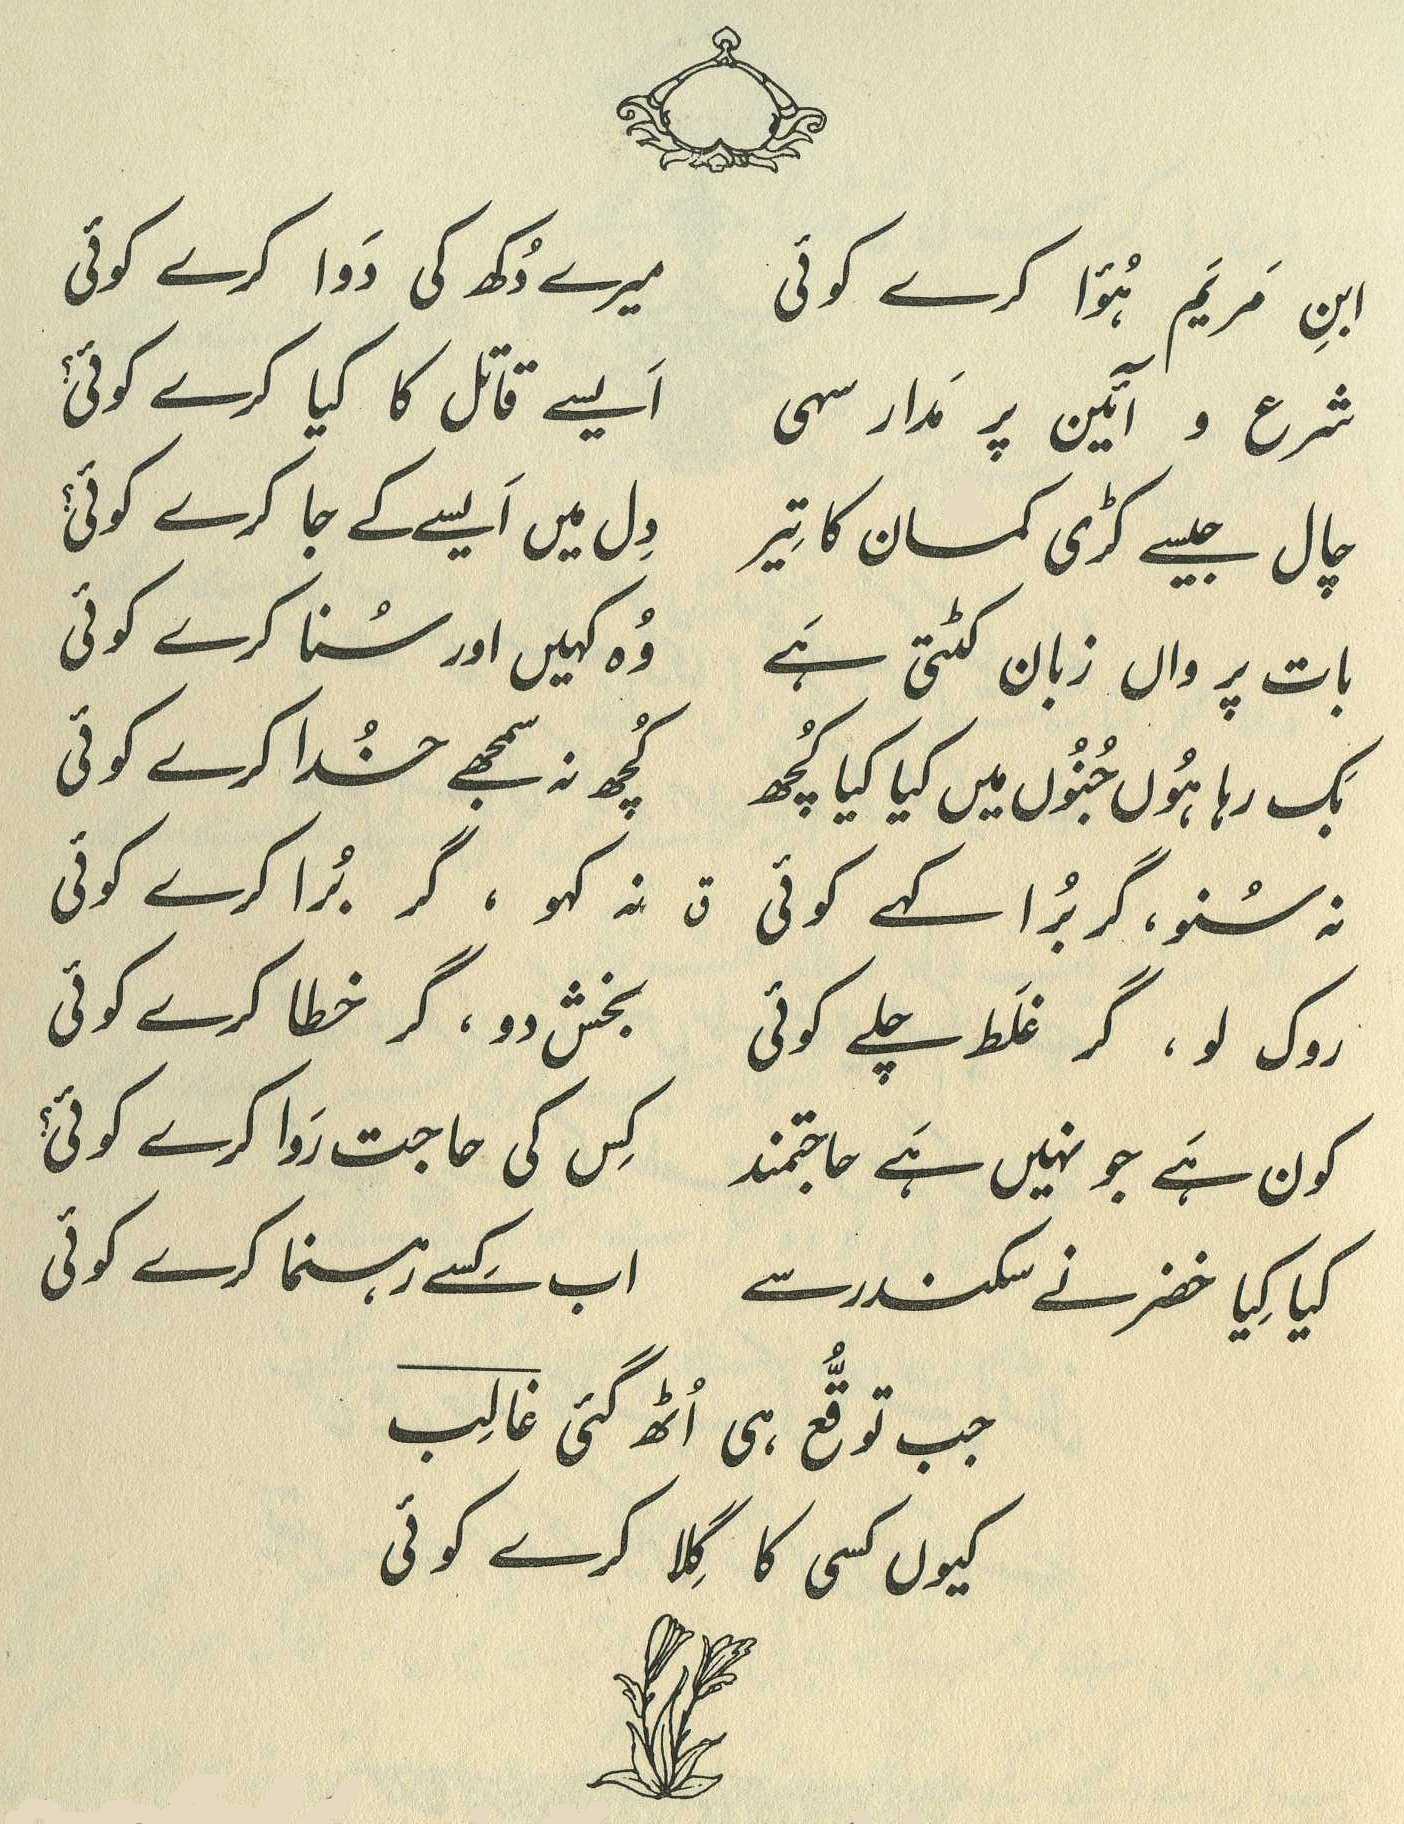 ابنِ مَریَم ہُؤا کرے کوئی میرے دُکھ کی دَوا کرے کوئی
شرع و آئین پر مَدار سہی اَیسے قاتل کا کیا کرے کوئی؟
چال جیسے کڑی کمان کا تِیر دِل میں اَیسے کے جا کرے کوئی؟
بات پر واں زبان کٹتی ہَے وُہ کہیں اور سُنا کرے کوئی
بَک رہا ہُوں جُنُوں میں کیا کیا کُچھ کُچھ نہ سمجھے خُدا کرے کوئی
نہ سُنو، گر بُرا کہے کوئی ق نہ کہو ، گر بُرا کرے کوئی
روک لو ، گر غَلَط چلے کوئی بخش دو ، گر خطا کرے کوئی
کون ہَے جو نہیں ہَے حاجتمند کِس کی حاجت رَوا کرے کوئی؟
کیا کِیا خضر نے سکندر سے اب کِسے رہنما کرے کوئی
جب توقُّع ہی اُٹھ گئی غالِب
کیوں کسی کا گِلا کرے کوئی